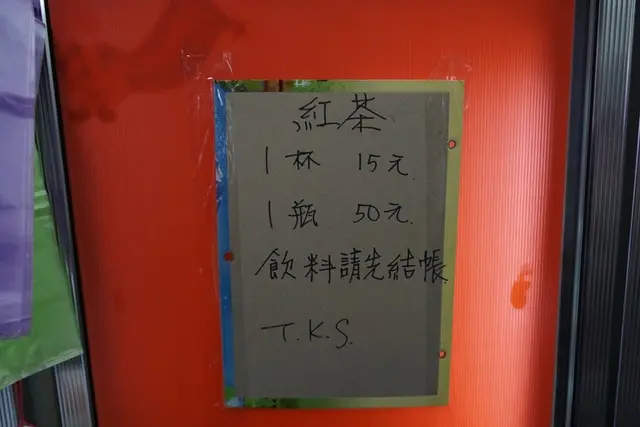 紅茶
1杯 15元
1瓶 50元.
飲料請先結帳
T.K.S.